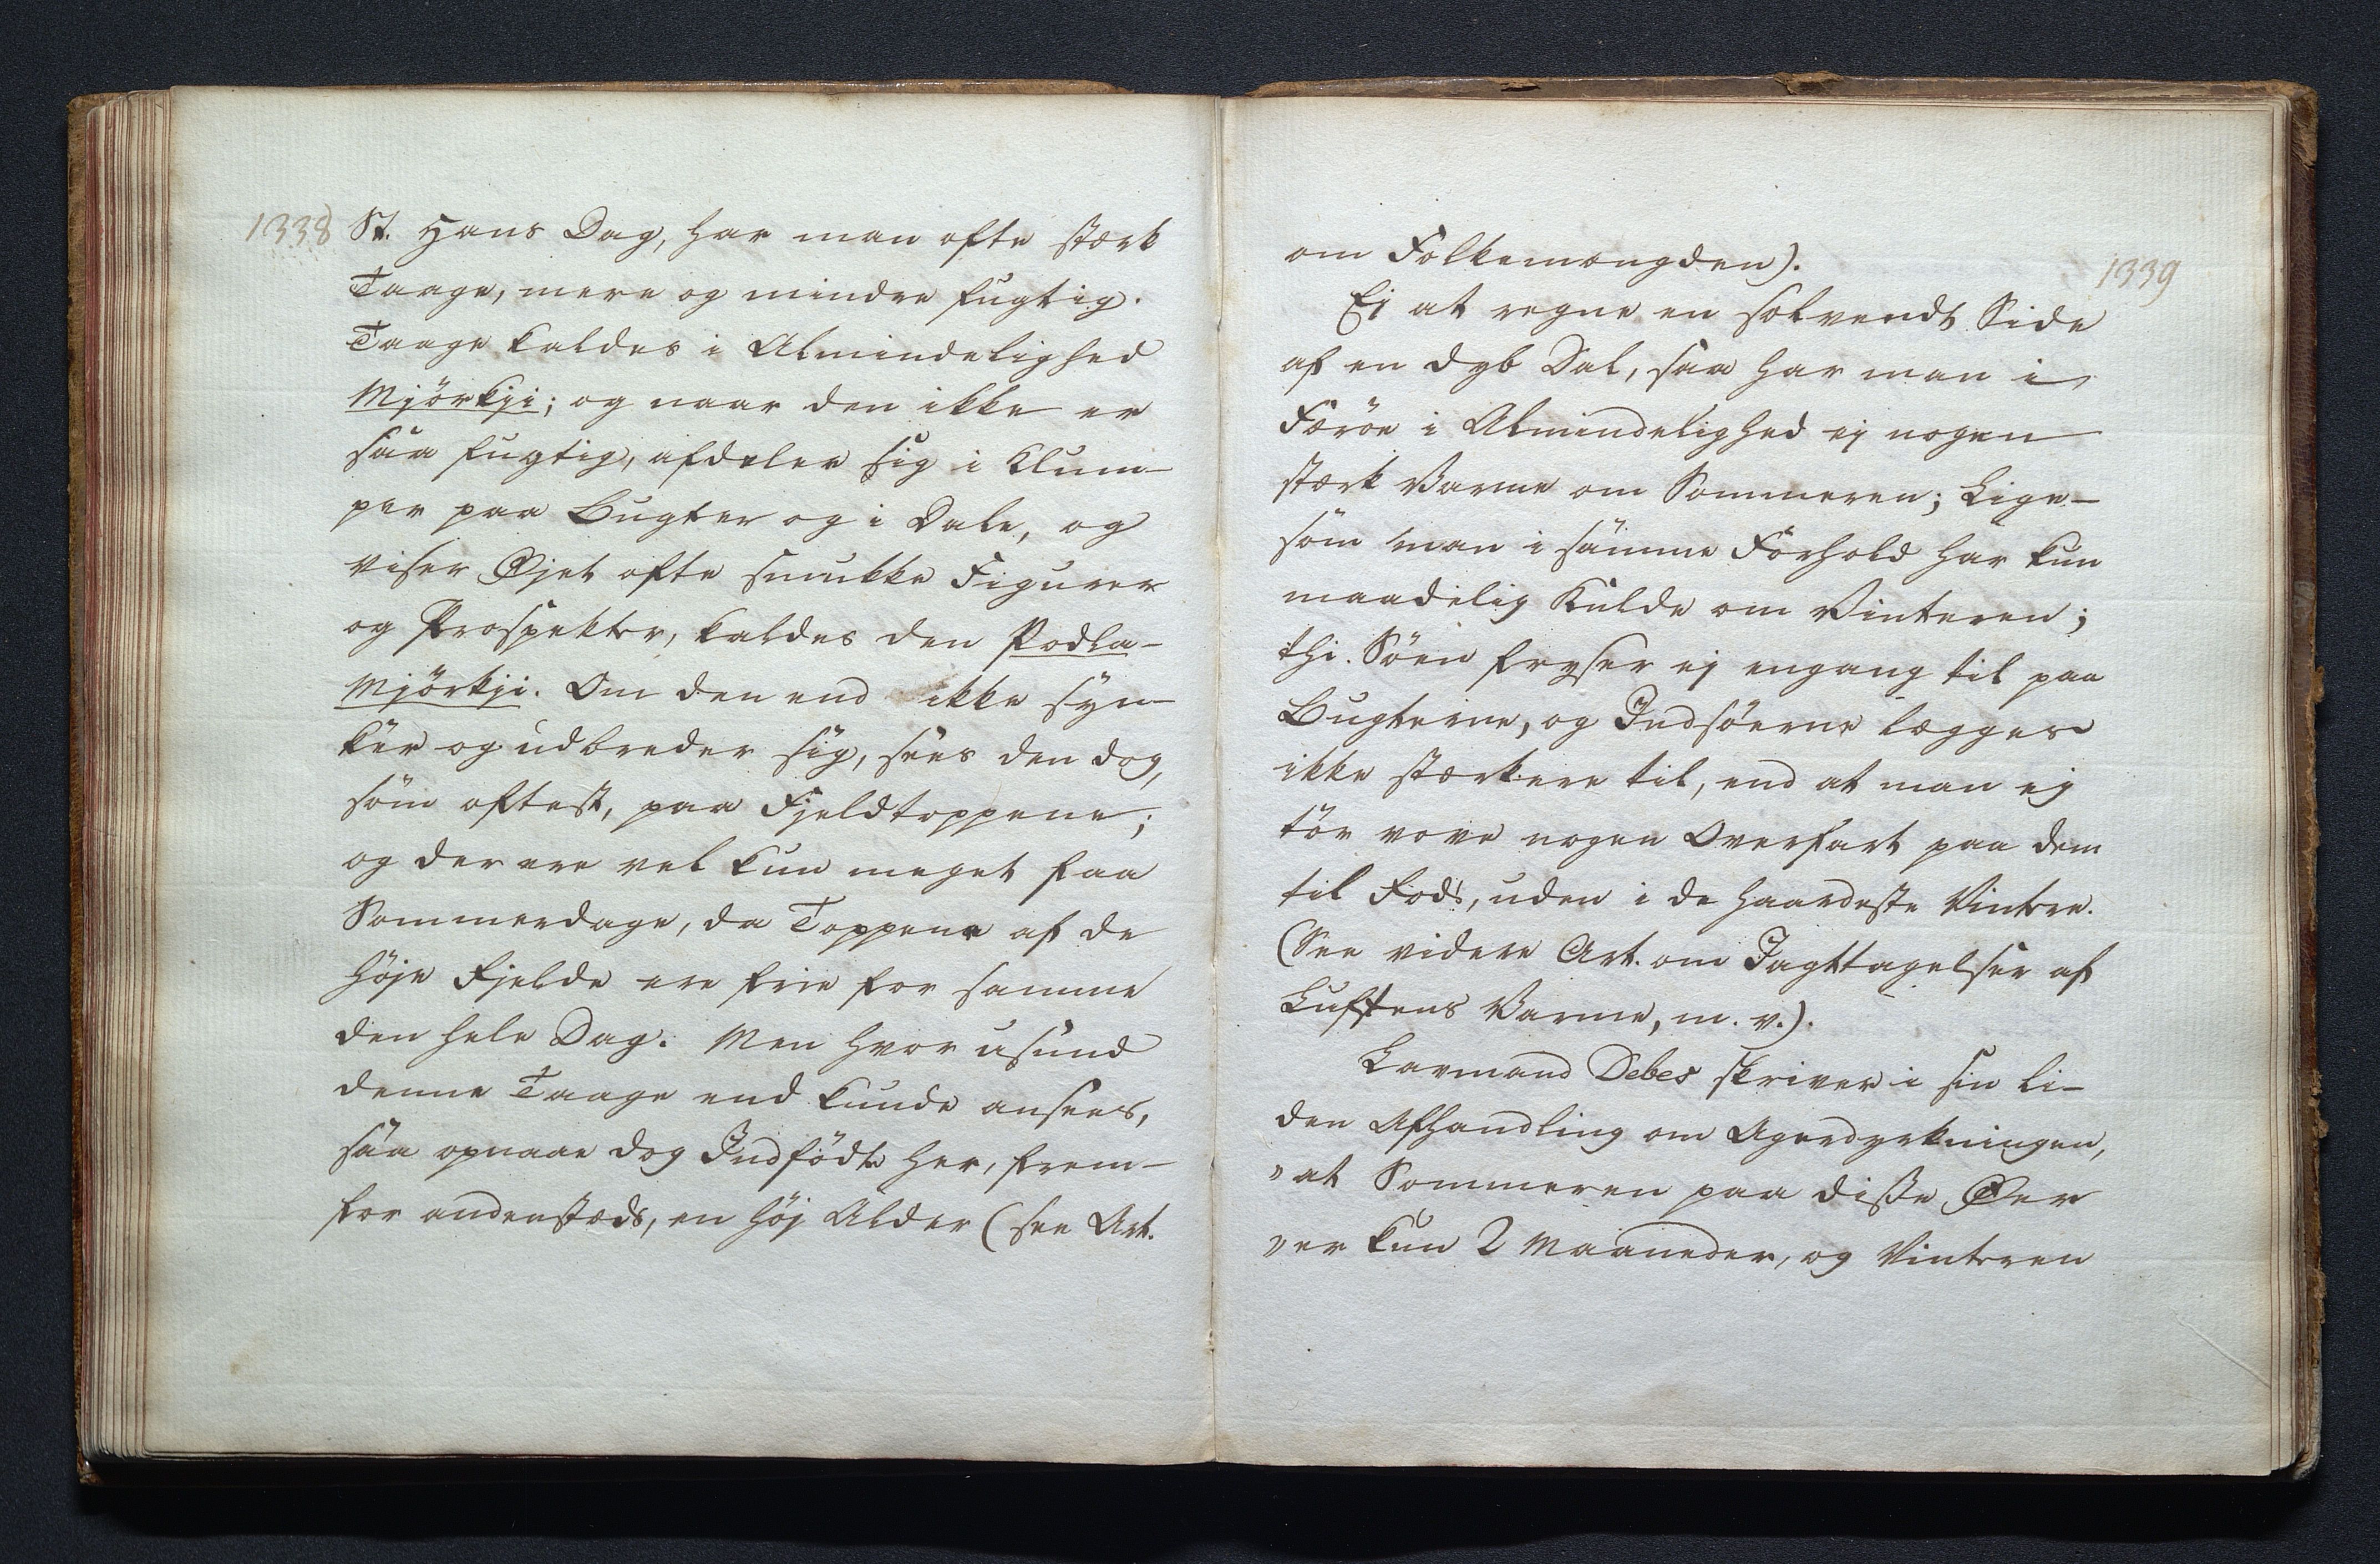 1338
St. Hans Dag, har man ofte stærk
Taage, mere og mindre fugtig.
Taage kaldes i Almindelighed
Mjörkji; og naar den ikke er
saa fugtig, afdeler sig i Klum-
per paa Bugter og i Dale, og
viser Øjet ofte smukke Figurer
og Prospekter, kaldes den Podla-
Mjörkji. Om den end ikke syn-
ker og udbreder sig, sees den dog,
som oftest, paa Fjeldtoppene;
og der ere vel kun meget faa
Sommerdage, da Toppene af de
höje Fjelde ere frie for samme
den hele Dag. Men hvor usund
denne Taage end kunde ansees,
saa opnaae dog Indfödte her, frem-
for andenstæds, en höj Alder (see Art.
1339
om Folkemængden).
Ej at regne en solvendt Side
af en dyb Dal, saa har man i
Færöe i Almindelighed ej nogen
stærk Varme om Sommeren; Lige-
som man i samme Forhold har kun
maadelig Kulde om Vinteren;
thi Söen fryser ej engang til paa
Bugterne, og Indsöerne lægges
ikke stærkere til, end at man ej
tör vove nogen Overfart paa dem
til Fods, uden i de haardeste Vintre.
(See videre Art. om Jagttagelser af
Luftens Varme, m. v.).
Lavmand Debes skriver i sin li-
den Afhandling om Agerdyrkningen,
"at Sommeren paa disse Øer
"er kun 2 Maaneder, og Vinteren